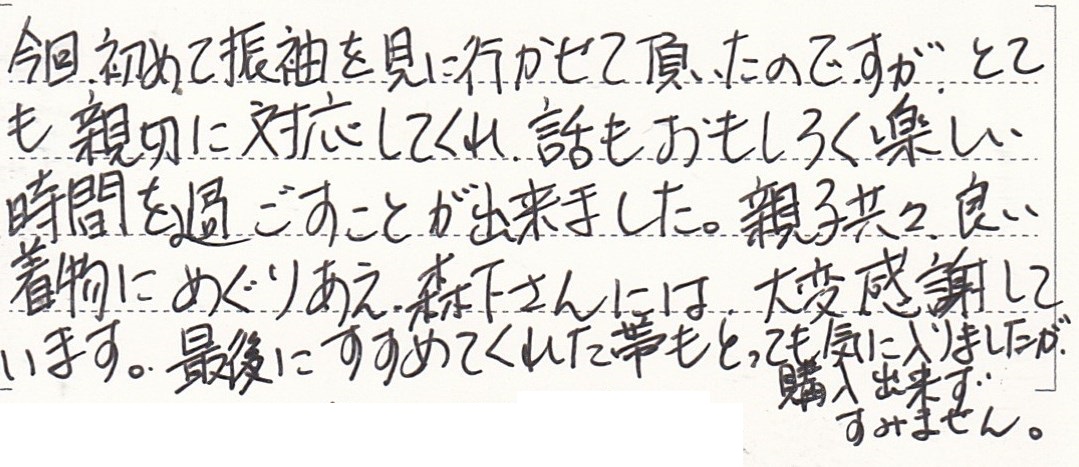 今回、初めて振袖を見に行かせて頂いたのですが、とて
も親切に対応してくれ、話もおもしろく楽しい
時間を過ごすことが出来ました。親子共々、良い
着物にめぐりあえ、森下さんには、大変感謝して
います。最後にすすめてくれた帯もとっても気に入りましたが、
購入出来ず
すみません。